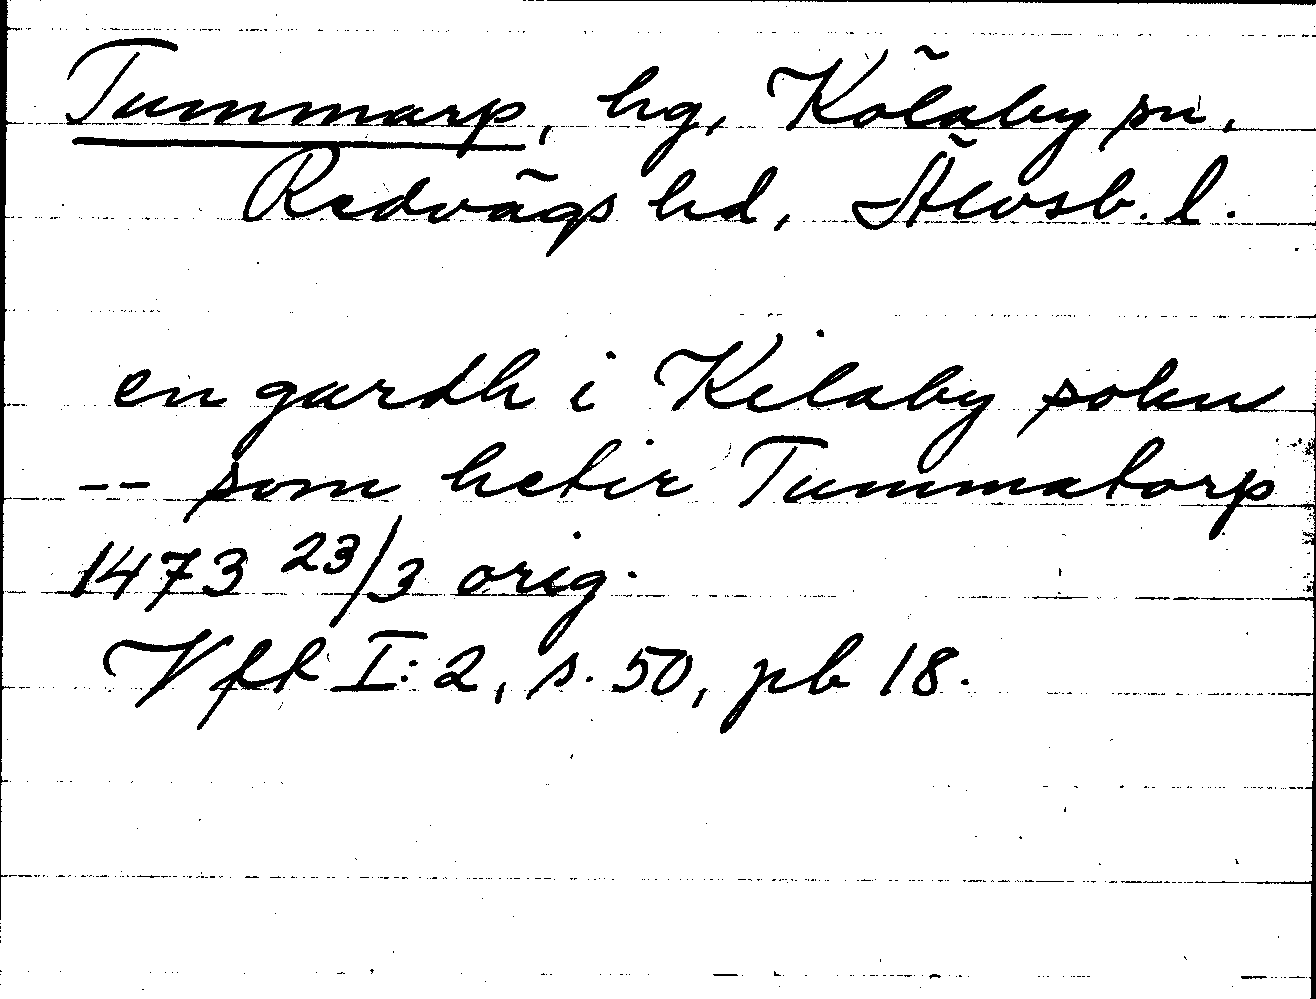 Tummarp, hg, Kölaby sn,
Redvägs hd, Älvsb. l.
en gardh i Kilaby sokn
-- som hetir Tummatorp
1473 23/3 orig.
Vfft I:2, s. 50, pb 18.